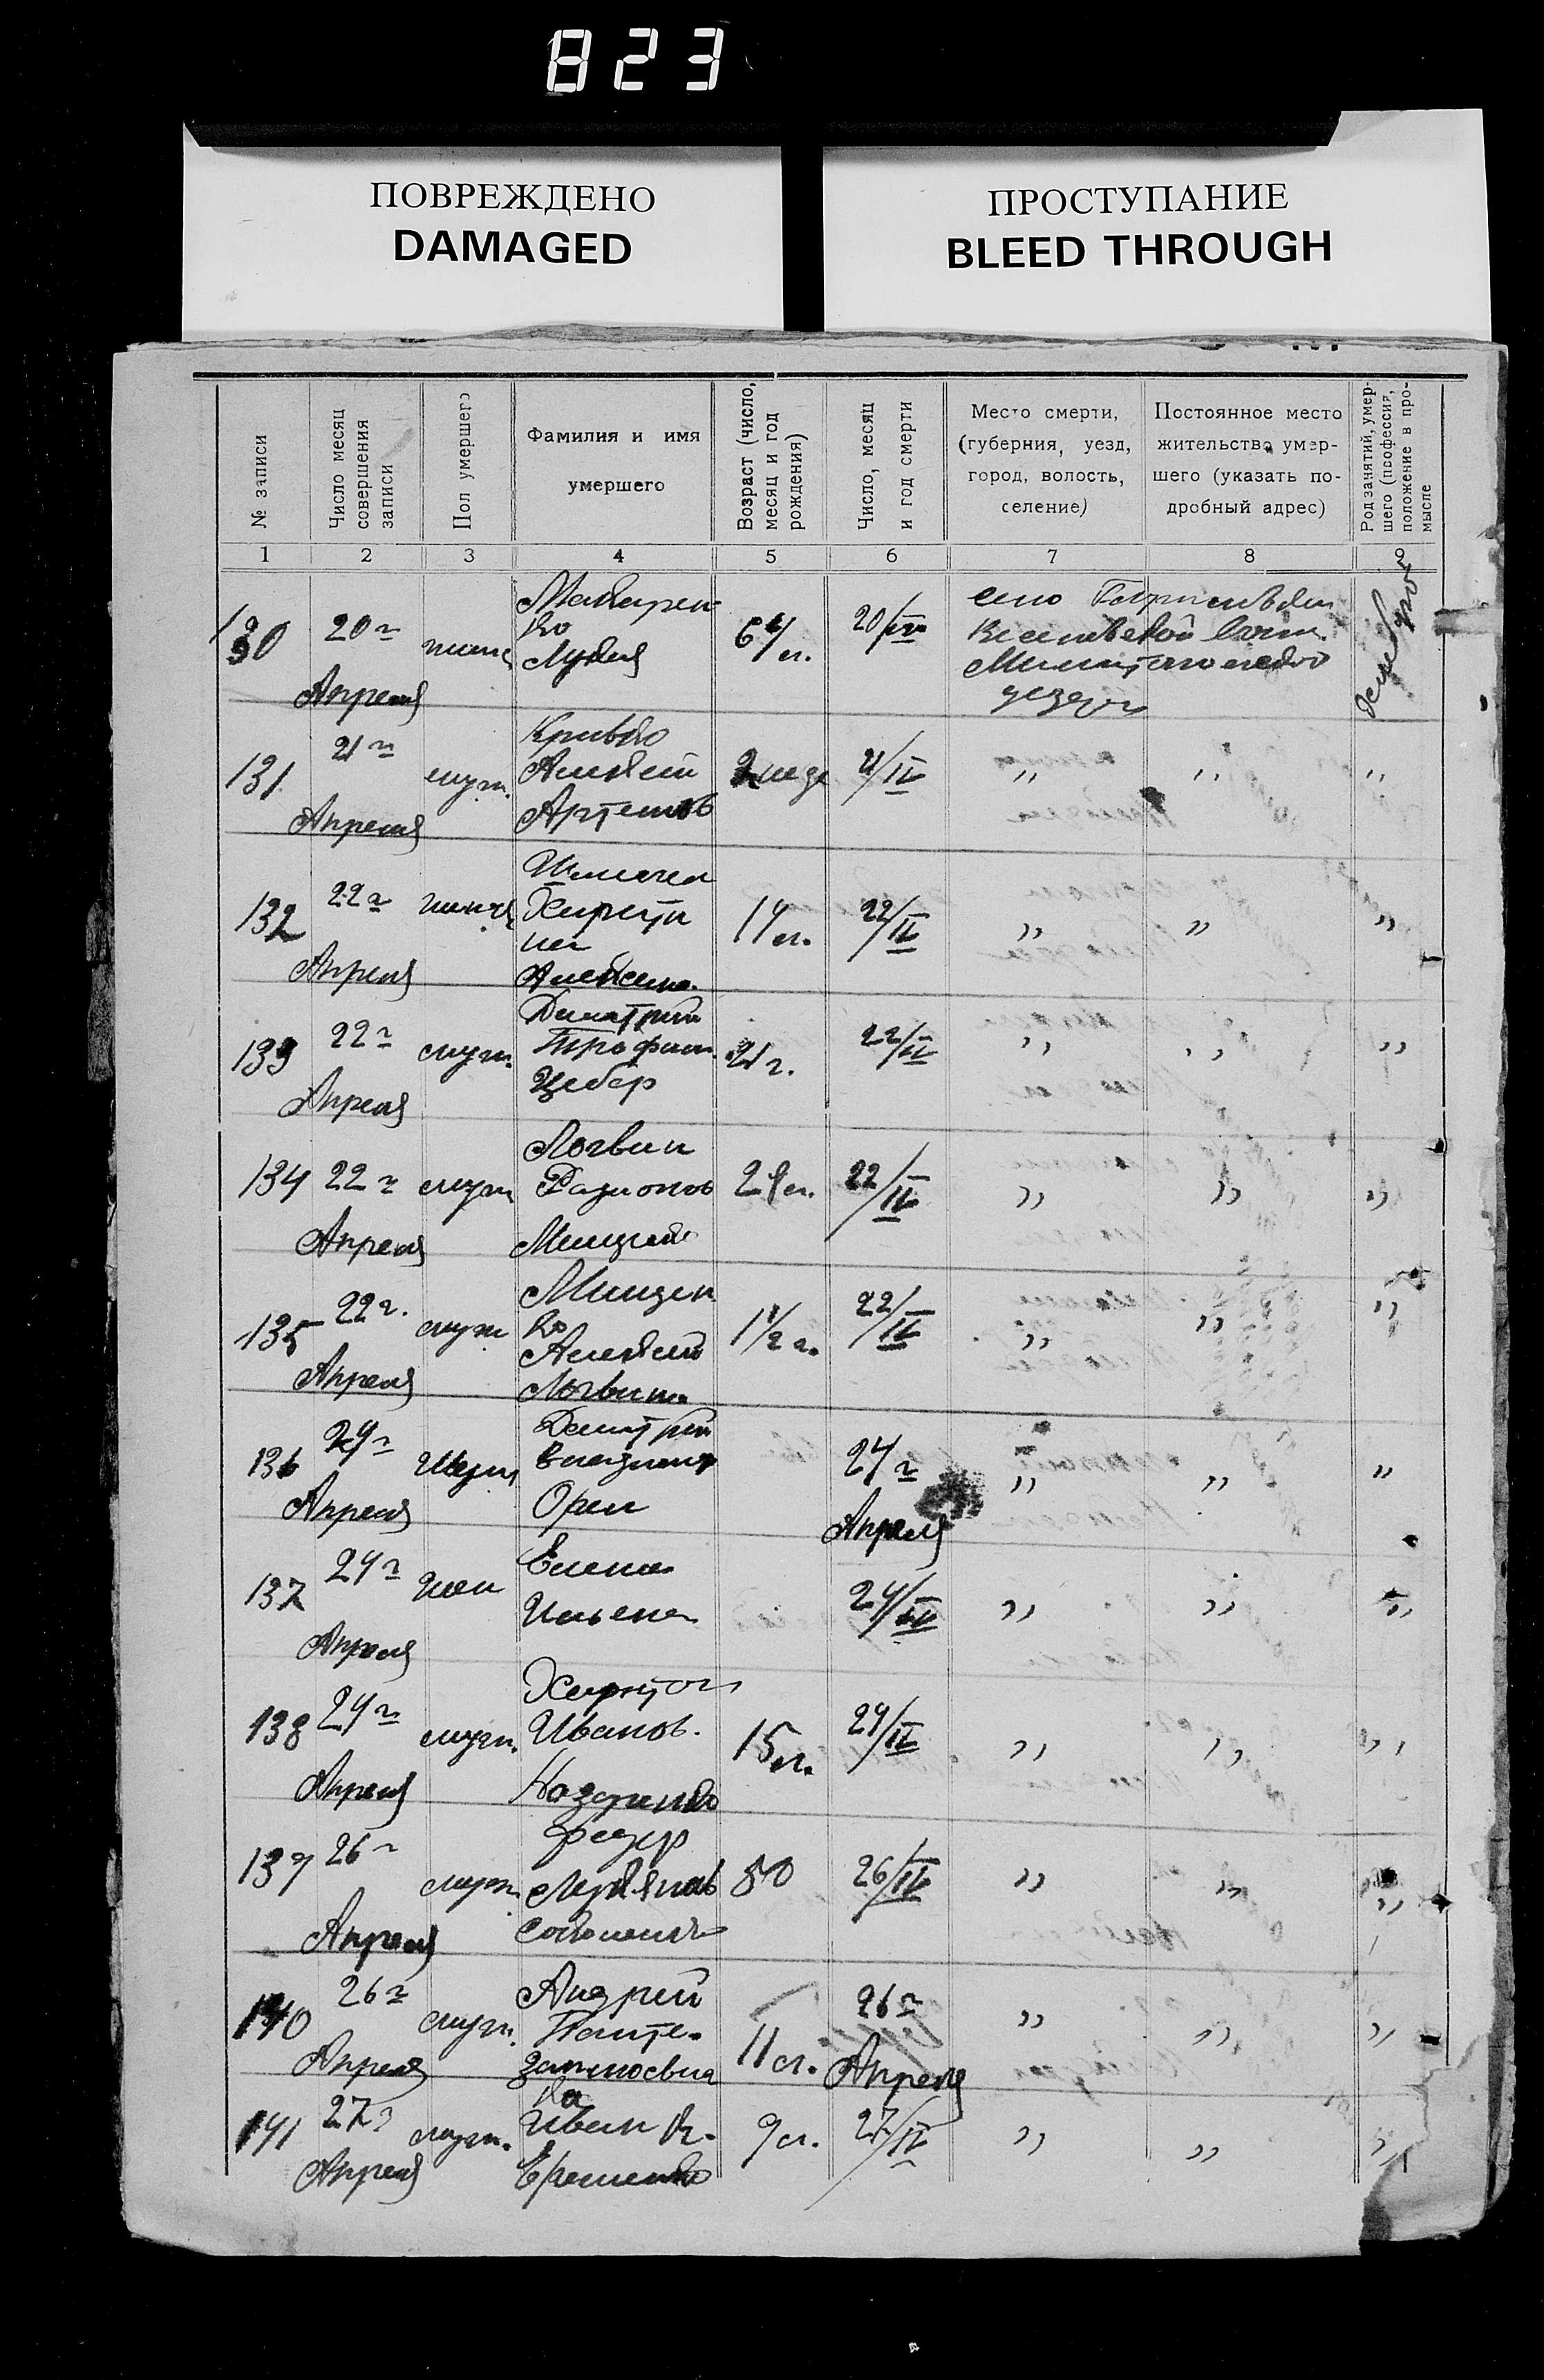 823
ПОВРЕЖДЕНО
DAMAGED
ПРОСТУПАНИЕ
BLEED THROUGH
№ записи
Число месяц совершения записи
Пол умершего
Фамилия и имя умершего
Возраст (число, месяц и год рождения)
Число, месяц и год смерти
Место смерти, (губерния, уезд, город, волость, селение)
Постоянное место жительства умершего (указать подробный адрес)
Род занятий, умершего (профессия, положение в промысле
1 2 3 4 5 6 7 8 9
130 20го Апреля
Макарен-
ко
20/IV
уезда
131 21го Апреля муж.
Кривко
Алексей
Артемов
21/IV " " "
132 22го Апреля
Алексеев.
14 л. 22/IV " " "
133 22го Апреля муж.
Димитрий
Трофим.
Цебер
21 г. 22/IV " " "
134 22го Апреля муж
Логвин
Радионов
22/IV " " "
135 22г. Апреля муж
Мищен
ко
Алексей
Логвин.
1 1/2 г. 22/IV " " "
136 24го Апреля
Дмитрий
24го Апреля " " "
137 24го Апреля жен
Елена
24/IV " " "
138 24го Апреля муж.
Харитон
Иванов.
Назаренко
15 л. 24/IV " " "
139 26го Апреля муж.
Федор
Лукянов
50 26/IV " " "
140 26го Апреля муж.
Андрей
Панте-
11 л. 26го Апреля " " "
141 27го Апреля муж.
Иван К.
Еременко
9 л. 27/IV " " "